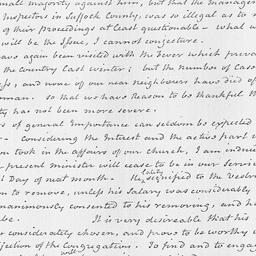 small majority against him, but that the manager
Inspectors in Suffock County, was so illegal as to
of their proceedings at least questionable — what
will be the Issue, I cannot conjecture.
have again been visited with the Fever which prev
the country last winter; but the number of Cas
ss, and none of our near neighbours have died of
oman. So that we have reason to be thankful
ty has not been more severe.
of general Importance can seldom be expected
— Considering the Interest and the active part
ou took in the affairs of our church, I am indu
present minister will cease to be in our Servi
Day of next month. He lately signified to the Vestr
on to remove, unless his Salary was considerably
nanimously consented to his removing, and he
be. It is very desireable that his
considerately chosen, and prove to be worthy
fection of the Congregations. To find and to engag
will